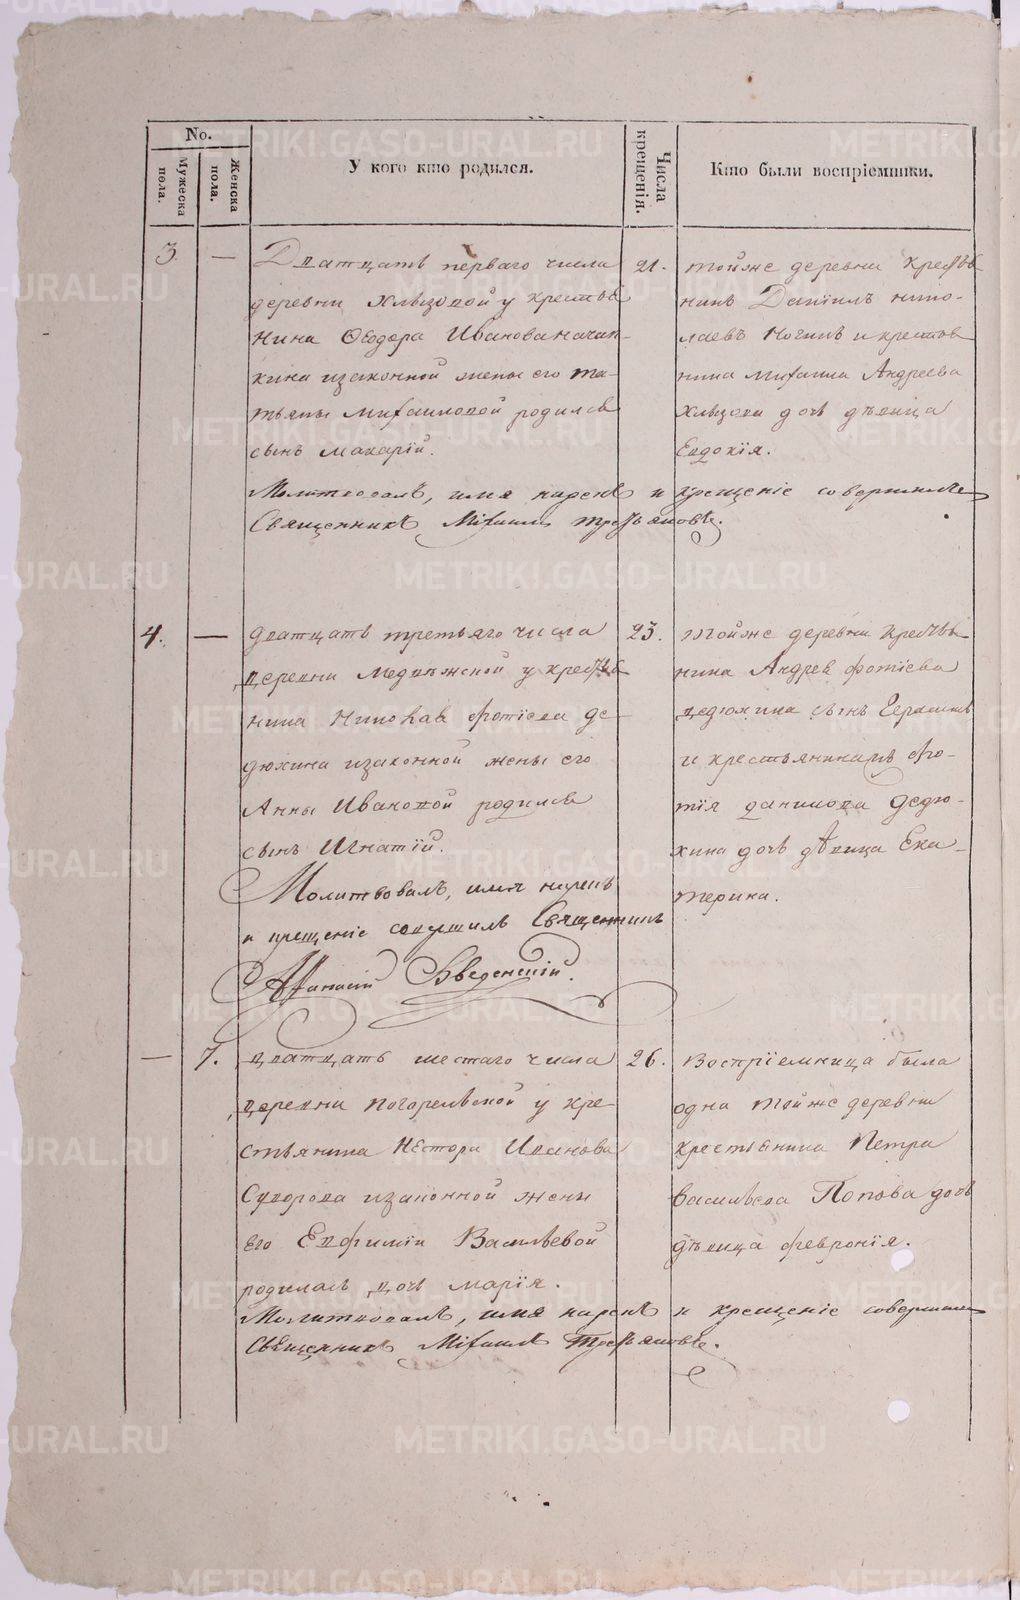 No.
Мужеска пола.
Женска пола.
У кого кто родился.
Числа крещенія.
Кто были воспріемники.
3. —
Дватцать перваго числа
деревни Хлызовой у кресть
нина Ѳеодора Иванова
кина изаконной жены его Та-
тьяны Михаиловой родился
сынъ Макарій.
21.
тойже деревни кресть
нинъ Даніилъ Нико-
лаевъ и крестья
нина Михаила Андреева
Хлызова дочь дѣвица
Евдокія.
Молитвовалъ, имя нарекъ и крещеніе совершилъ
Священникъ Михаилъ Третьяковъ.
4. —
дватцать третьяго числа
деревни Медвѣжской у кресть
нина Николая Фотіева Де-
дюхина изаконной жены его
Анны Ивановой родился
сынъ Игнатій.
23.
тойже деревни крестья
нина Андрея Фотіева
Дедюхина сынъ Герасимъ
и крестьянина Фо-
тія Данилова Дедю-
хина дочь дѣвица Ека-
терина.
Молитвовалъ, имя нарекъ
и крещеніе совершилъ Священникъ
Афанасій Введенскій.
— 7.
дватцать шестаго числа
деревни Погорельской у кре-
стьянина Нестора Иванова
Суворова изаконной жены
его Евфиміи Васильевой
родилась дочь Марія.
26.
Воспріемница была
одна тойже деревни
крестьянина Петра
Васильева Попова дочь
дѣвица Февронія.
Молитвовалъ, имя нарекъ и крещеніе совершилъ
Священникъ Михаилъ Третьяковъ.
METRIKI.GASO-URAL.RU